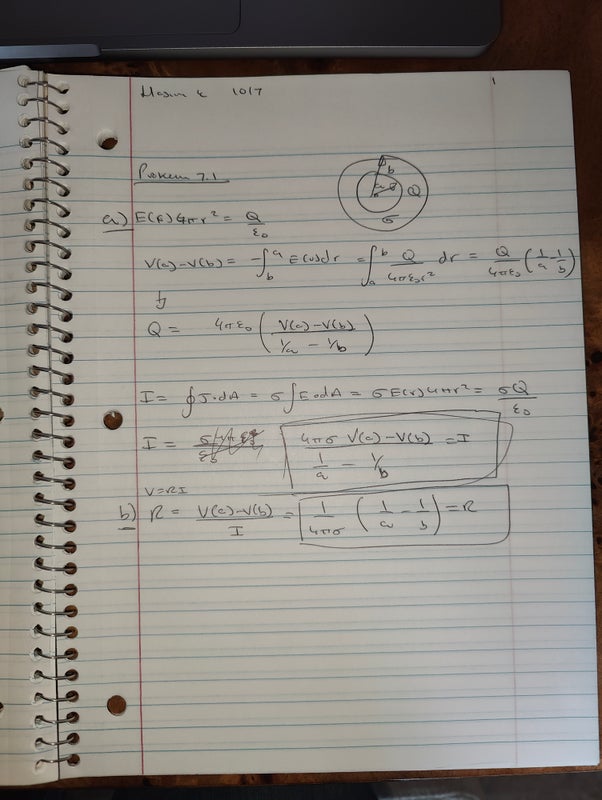 10/7
1
Problem 7.1
b
a
Q
σ
a) E(r) 4πr² = Q/ε₀
V(a)-V(b) = -∫_b^a E(r)dr = ∫_a^b Q/4πε₀r² dr = Q/4πε₀ (1/a - 1/b)
↓
Q = 4πε₀ ( V(a)-V(b) / 1/a - 1/b )
I = ∮J·dA = σ∫E·dA = σE(r)4πr² = σQ/ε₀
I = 4πσ V(a)-V(b) / 1/a - 1/b = I
V=RI
b) R = V(a)-V(b)/I = 1/4πσ (1/a - 1/b) = R